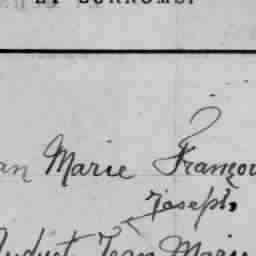 ET SURNOMS.
an Marie Françoi
Joseph,
Jean Marie